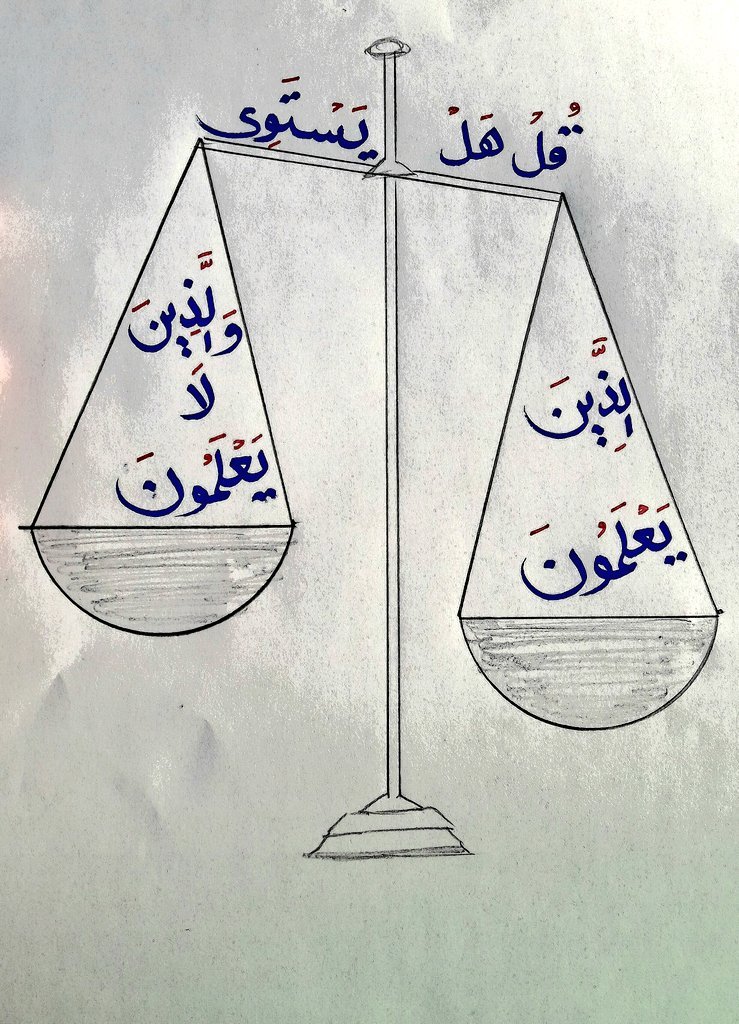 قُلْ هَلْ يَسْتَوِى
الَّذِينَ
يَعْلَمُونَ
وَالَّذِينَ
لَا
يَعْلَمُونَ